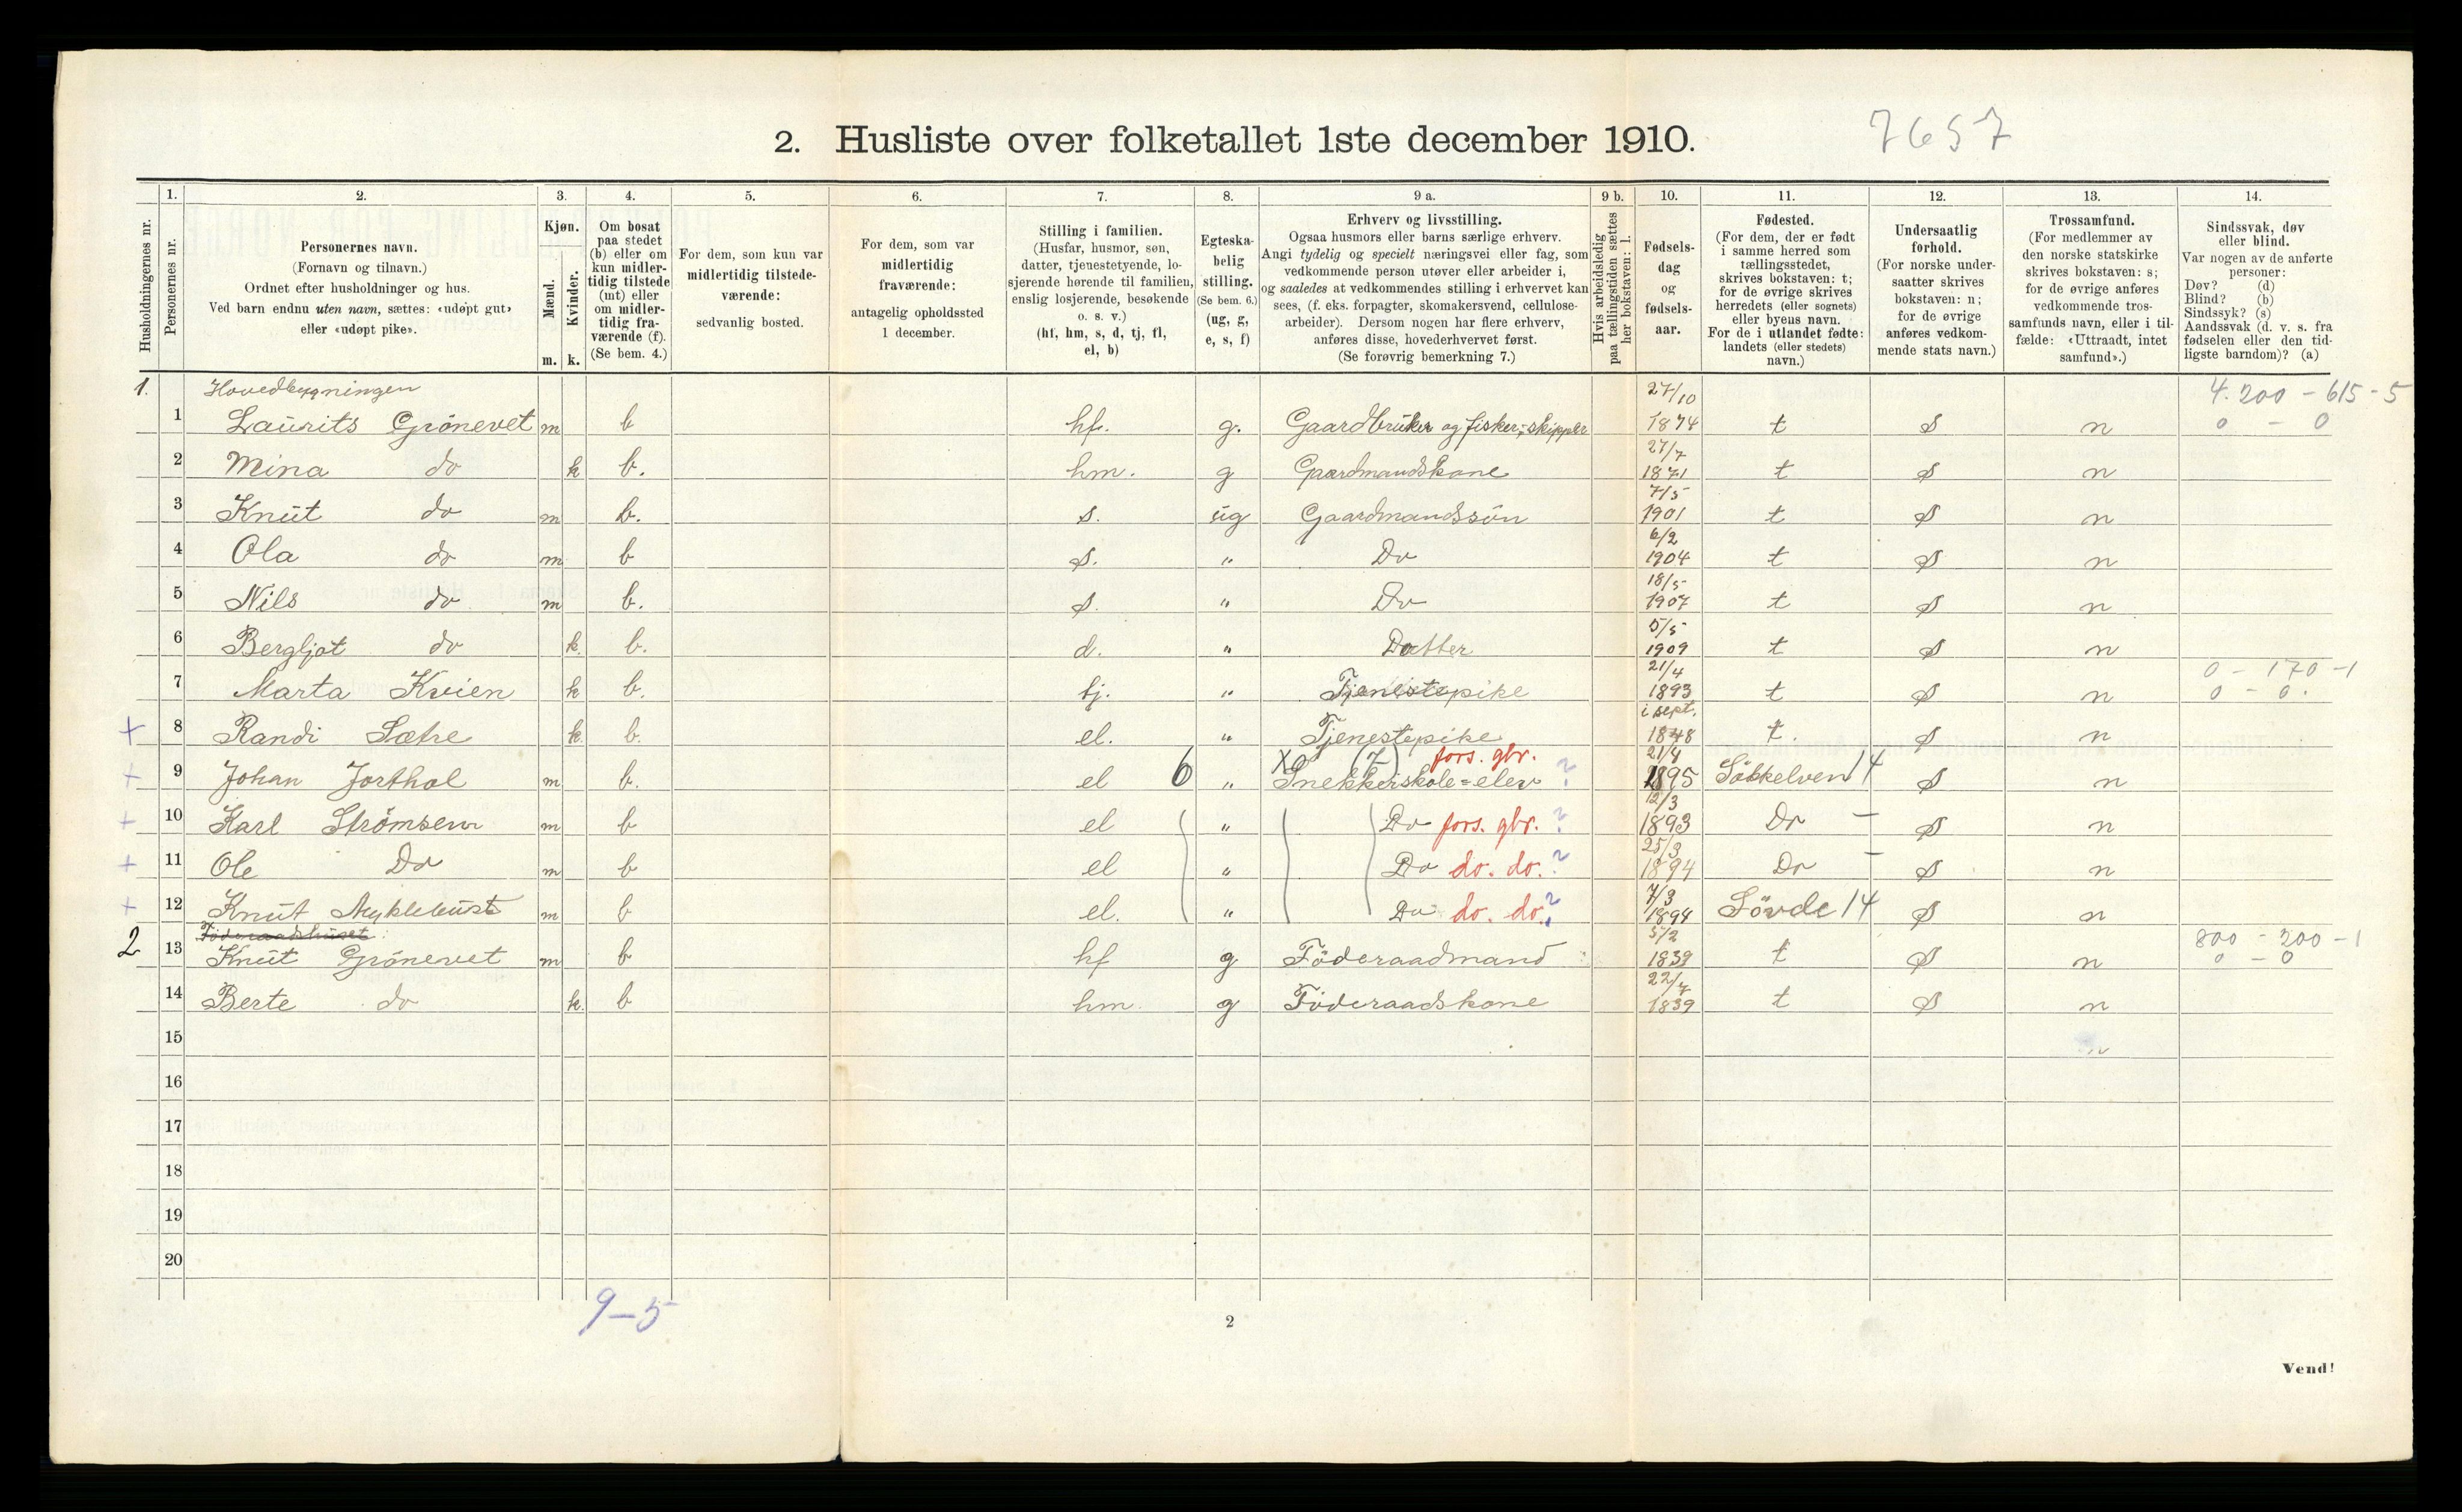 2. Husliste over folketallet 1ste december 1910.
7657
1. 2. 3. 4. 5. 6. 7. 8. 9 a. 9 b. 10. 11. 12. 13. 14.
Husholdningernes nr.
Personernes nr.
Personernes navn.
(Fornavn og tilnavn.)
Ordnet efter husholdninger og hus.
Ved barn endnu uten navn, sættes: «udøpt gut»
eller «udøpt pike».
Kjøn.
Mænd.
Kvinder.
m. k.
Om bosat
paa stedet
(b) eller om
kun midler-
tidig tilstede
(mt) eller
om midler-
tidig fra-
værende (f).
(Se bem. 4.)
For dem, som kun var
midlertidig tilstede-
værende:
sedvanlig bosted.
For dem, som var
midlertidig
fraværende:
antagelig opholdssted
1 december.
Stilling i familien.
(Husfar, husmor, søn,
datter, tjenestetyende, lo-
sjerende hørende til familien,
enslig losjerende, besøkende
o. s. v.)
(hf, hm, s, d, tj, fl,
el, b)
Egteska-
belig
stilling.
(Se bem. 6.)
(ug, g,
e, s, f)
Erhverv og livsstilling.
Ogsaa husmors eller barns særlige erhverv.
Angi tydelig og specielt næringsvei eller fag, som
vedkommende person utøver eller arbeider i,
og saaledes at vedkommendes stilling i erhvervet kan
sees, (f. eks. forpagter, skomakersvend, cellulose-
arbeider). Dersom nogen har flere erhverv,
anføres disse, hovederhvervet først.
(Se forøvrig bemerkning 7.)
Hvis arbeidsledig
paa tællingstiden sættes
her bokstaven: l.
Fødsels-
dag
og
fødsels-
aar.
Fødested.
(For dem, der er født
i samme herred som
tællingsstedet,
skrives bokstaven: t;
for de øvrige skrives
herredets (eller sognets)
eller byens navn.
For de i utlandet fødte:
landets (eller stedets)
navn.)
Undersaatlig
forhold.
(For norske under-
saatter skrives
bokstaven: n;
for de øvrige
anføres vedkom-
mende stats navn.)
Trossamfund.
(For medlemmer av
den norske statskirke
skrives bokstaven: s;
for de øvrige anføres
vedkommende tros-
samfunds navn, eller i til-
fælde: «Uttraadt, intet
samfund».)
Sindssvak, døv
eller blind.
Var nogen av de anførte
personer:
Døv? (d)
Blind? (b)
Sindssyk? (s)
Aandssvak (d. v. s. fra
fødselen eller den tid-
ligste barndom)? (a)
1. Hovedbygningen 27/10 4.200 - 615 - 5
1 Laurits Grönevet m b hf. g. Gaardbruker og fisker-skipper 1874 t s n 0 - 0
27/7
2 Mina do k b. hm. g Gaardmandskone 1871 t s n
7/5
3 Knut do m b. s. ug Gaardmandssön 1901 t s n
6/2
4 Ola do m b s. " Do 1904 t s n
18/5
5 Nils do m b. s. " Do 1907 t s n
5/5
6 Bergljot do k. b. d. " Datter 1909 t s n
21/4 0 - 170 - 1
7 Marta Kvien k b. tj. " Tjenestepike 1893 t s n 0 - 0.
i sept.
+ 8 Randi Sætre k. b. el. " Tjenestepike 1848 t. s n
X (7) fors. gbr. 21/8
+ 9 Johan Jorthol m b. el 6 " Snekkerskole=elev ? 1895 Sökkelven 14 s n
12/3
+ 10 Karl Strömsem m b el " Do fors. gbr. ? 1893 Do — s n
25/3
+ 11 Ole Do m b el " Do do. do. ? 1894 Do — s n
7/3
+ 12 Knut Myklebust m b el. " Do do. do. ? 1894 Sövde 14 s n
2 Föderaadshuset 5/2 800 - 200 - 1
13 Knut Grönevet m b hf g Föderaadmand 1839 t s n 0 - 0
22/7
14 Berte do k. b hm. g Föderaadskone 1839 t s n
15 n
16
17
18
19
20
9-5
2
Vend!